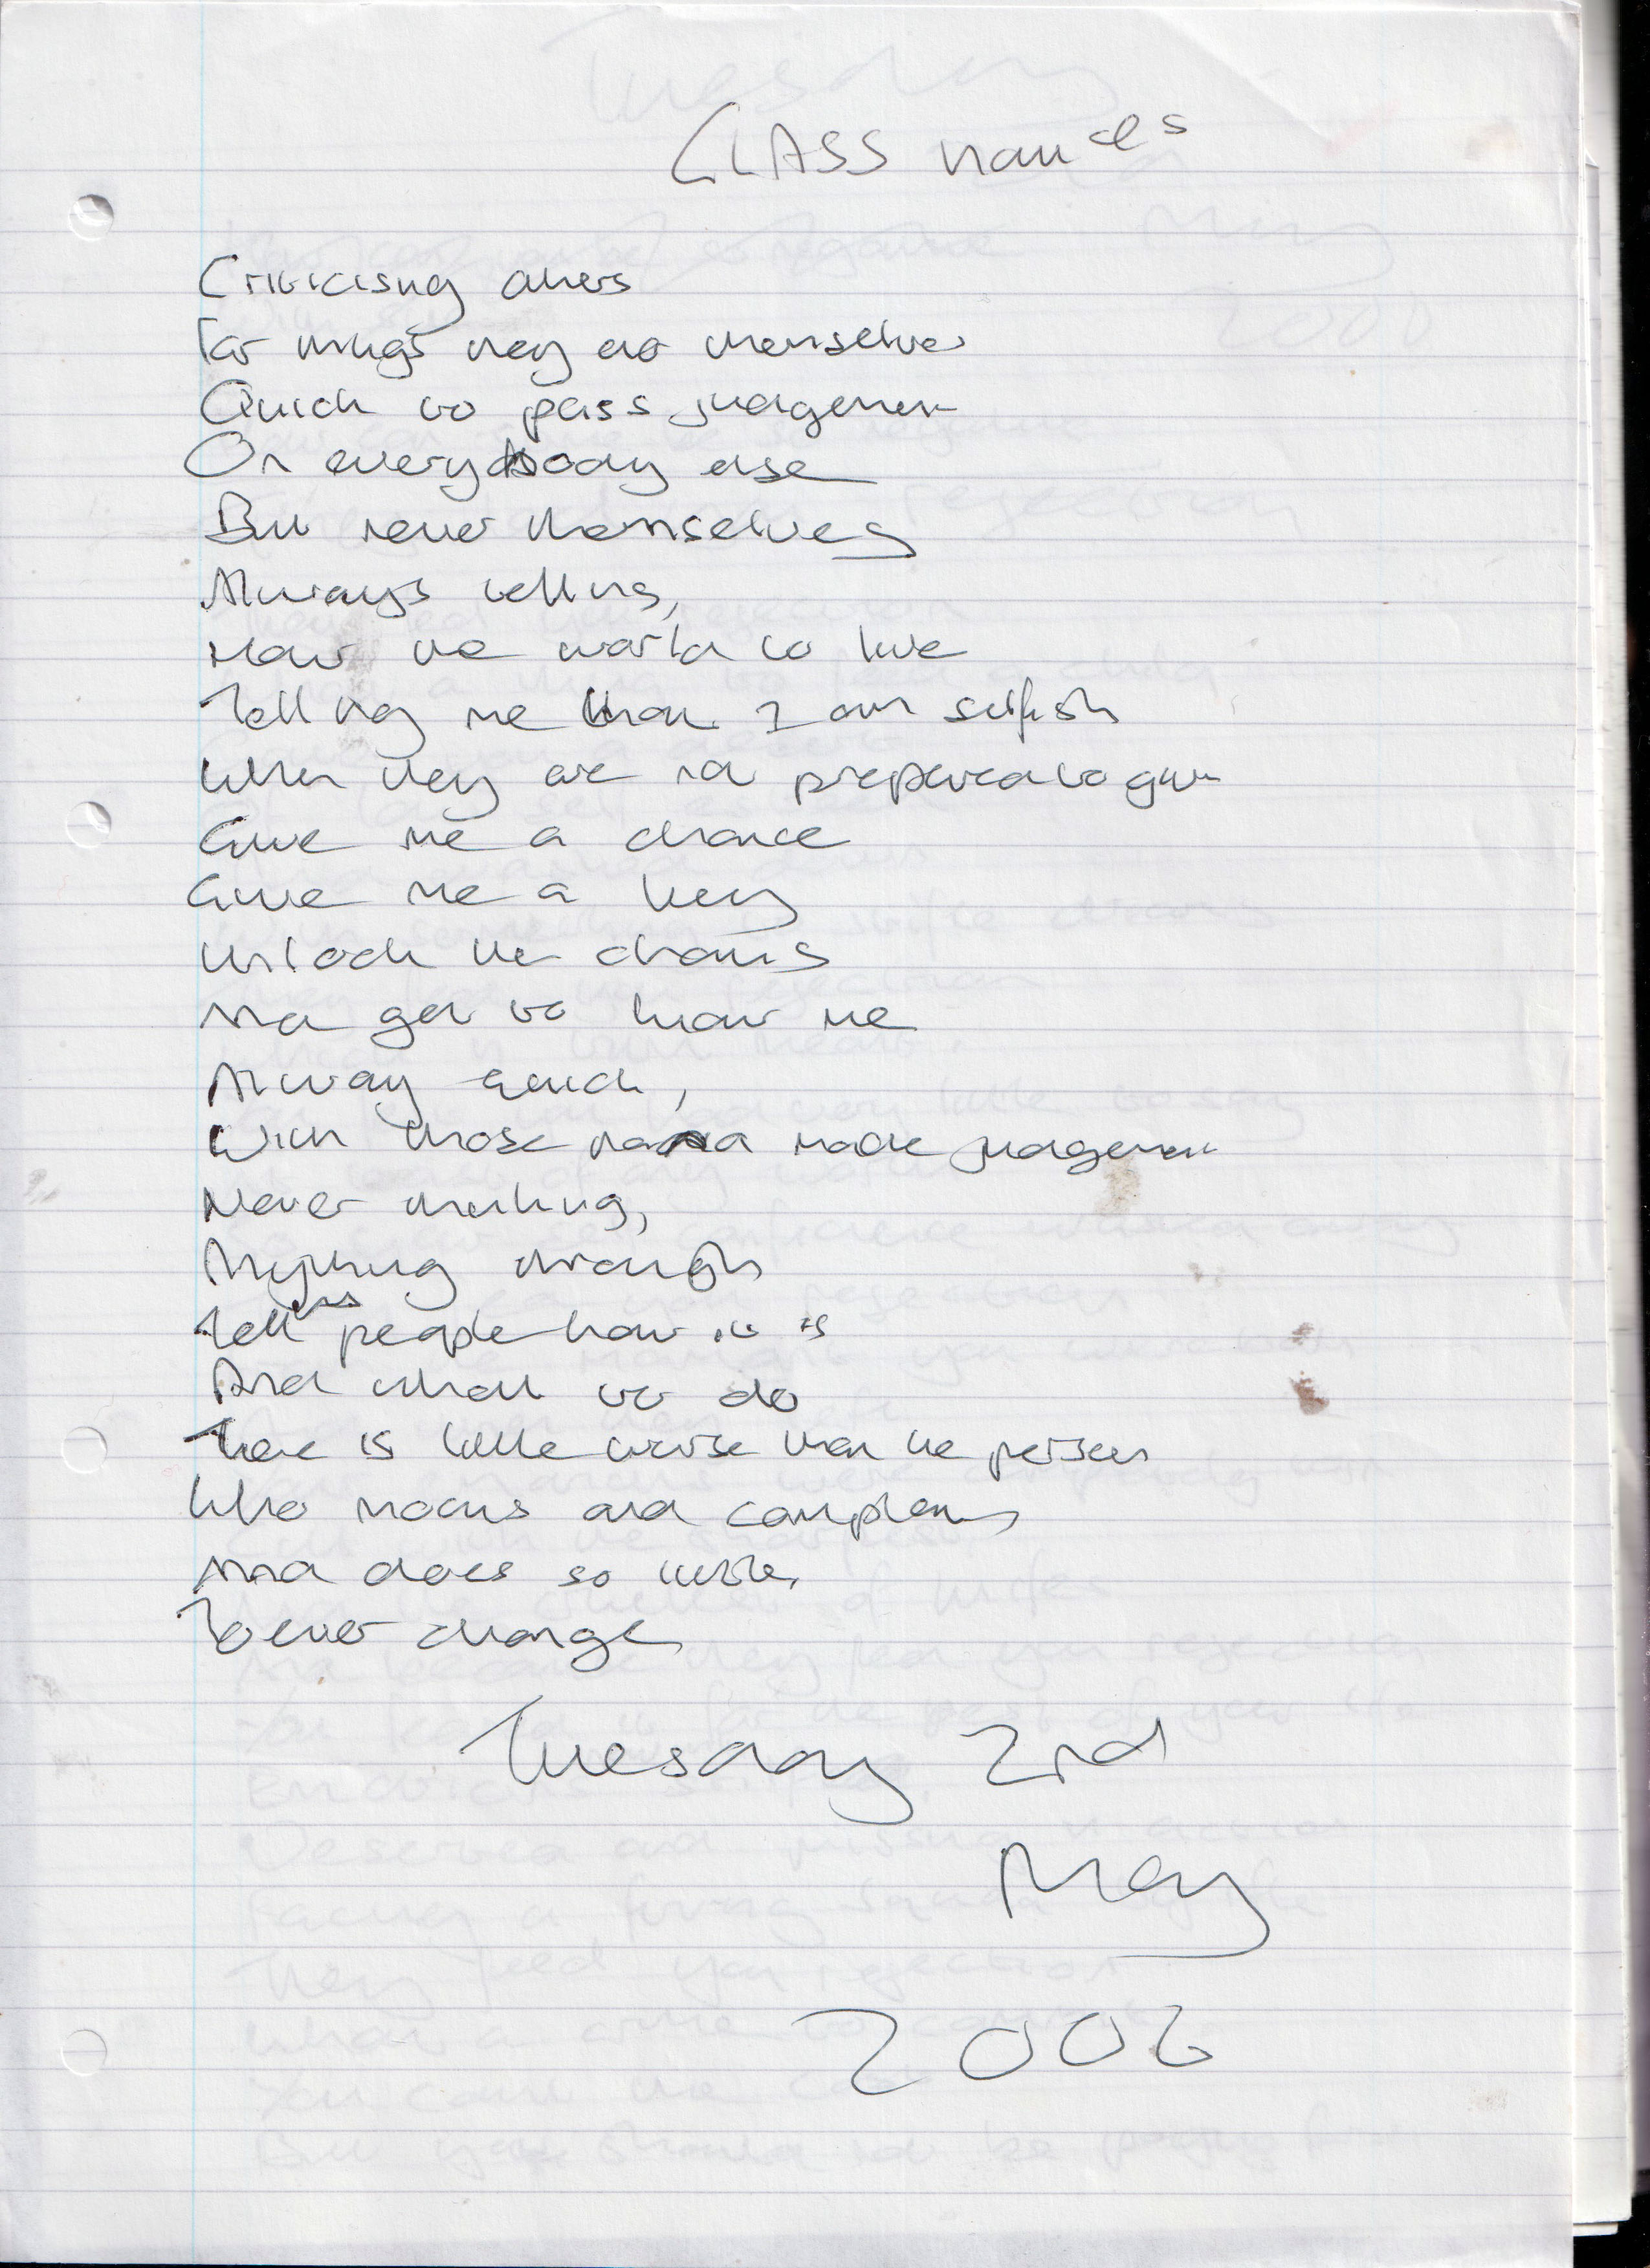 GLASS houses
Criticising others
For things they do themselves
Quick to pass judgement
On everybody else
But never themselves
Always telling,
How the world to live
Telling me that I am selfish
When they are not prepared to give
Give me a chance
Give me a key
Unlock the chains
And get to know me
Always quick,
With those made judgement
Never thinking,
Anything through
Telling people how it is
And what to do
There is little worse than the person
Who moans and complains
And does so little,
To ever change
Tuesday 2nd
May
2006